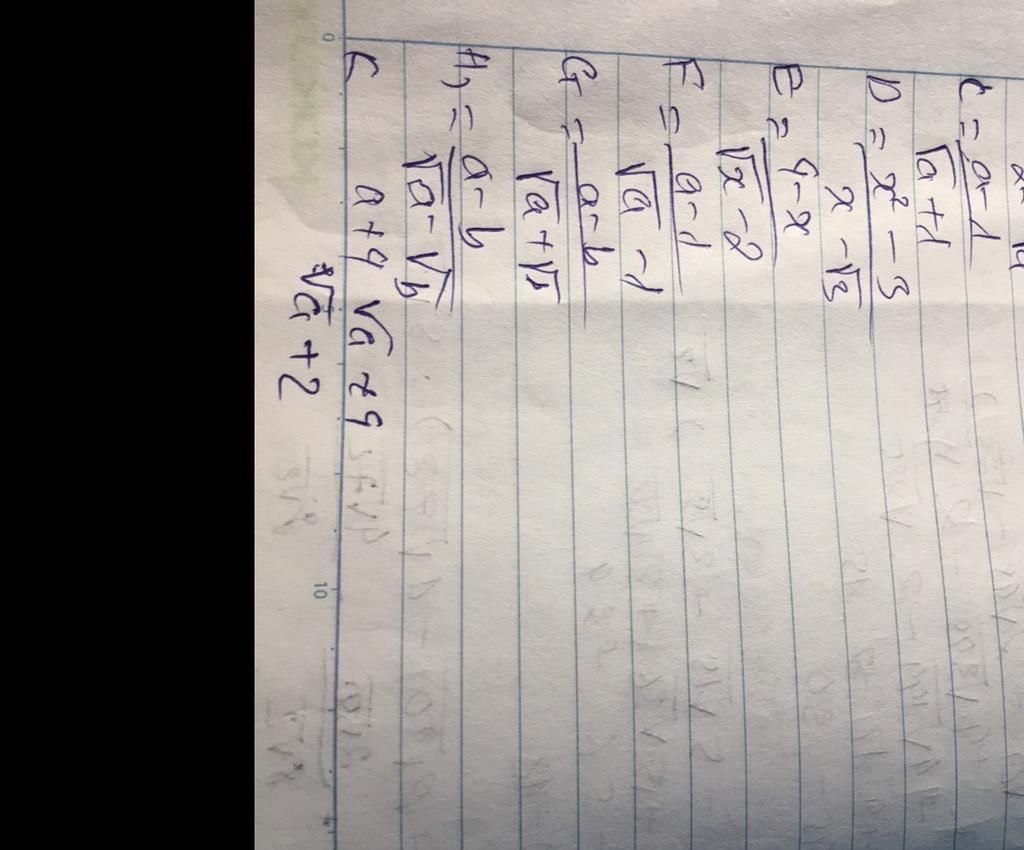 C = a-1
√a +1
D = x² - 3
x - √3
E = 4-x
√x - 2
F = a-1
√a - 1
G = a-b
√a +
H, = a-b
√a - √b
a+4 √a +4
√a + 2
0
10